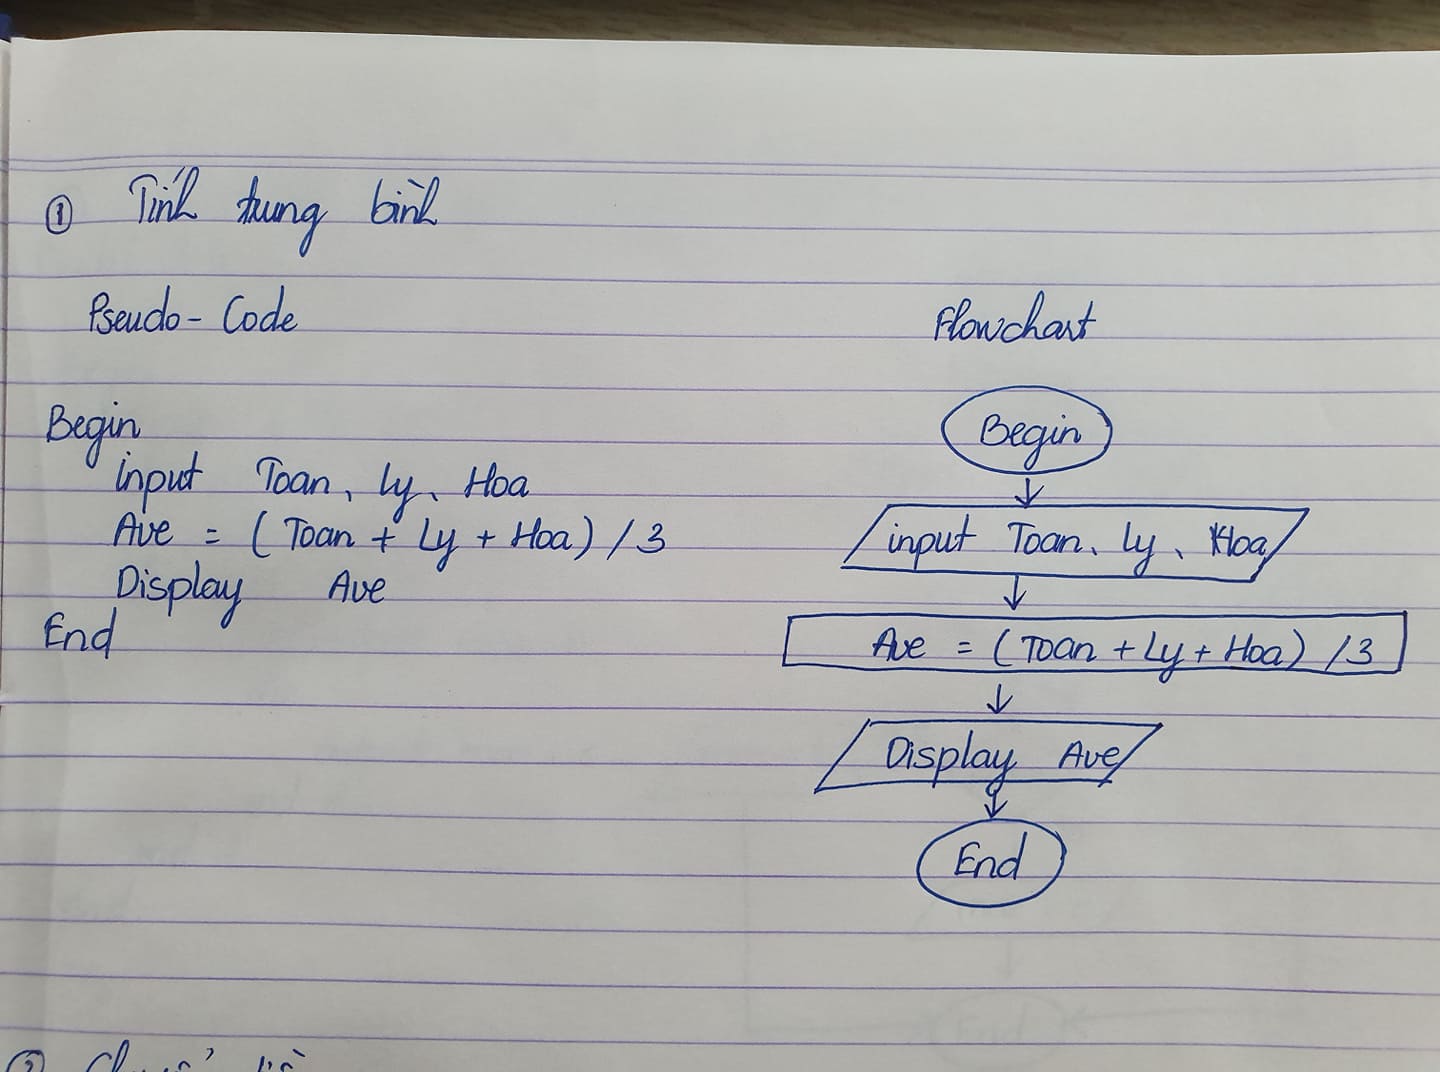 ① Tính trung bình
Pseudo-Code
Begin
input Toan, Ly, Hoa
Ave = (Toan + Ly + Hoa) / 3
Display Ave
End
Flowchart
Begin
input Toan, Ly, Hoa
Ave = (Toan + Ly + Hoa) / 3
Display Ave
End